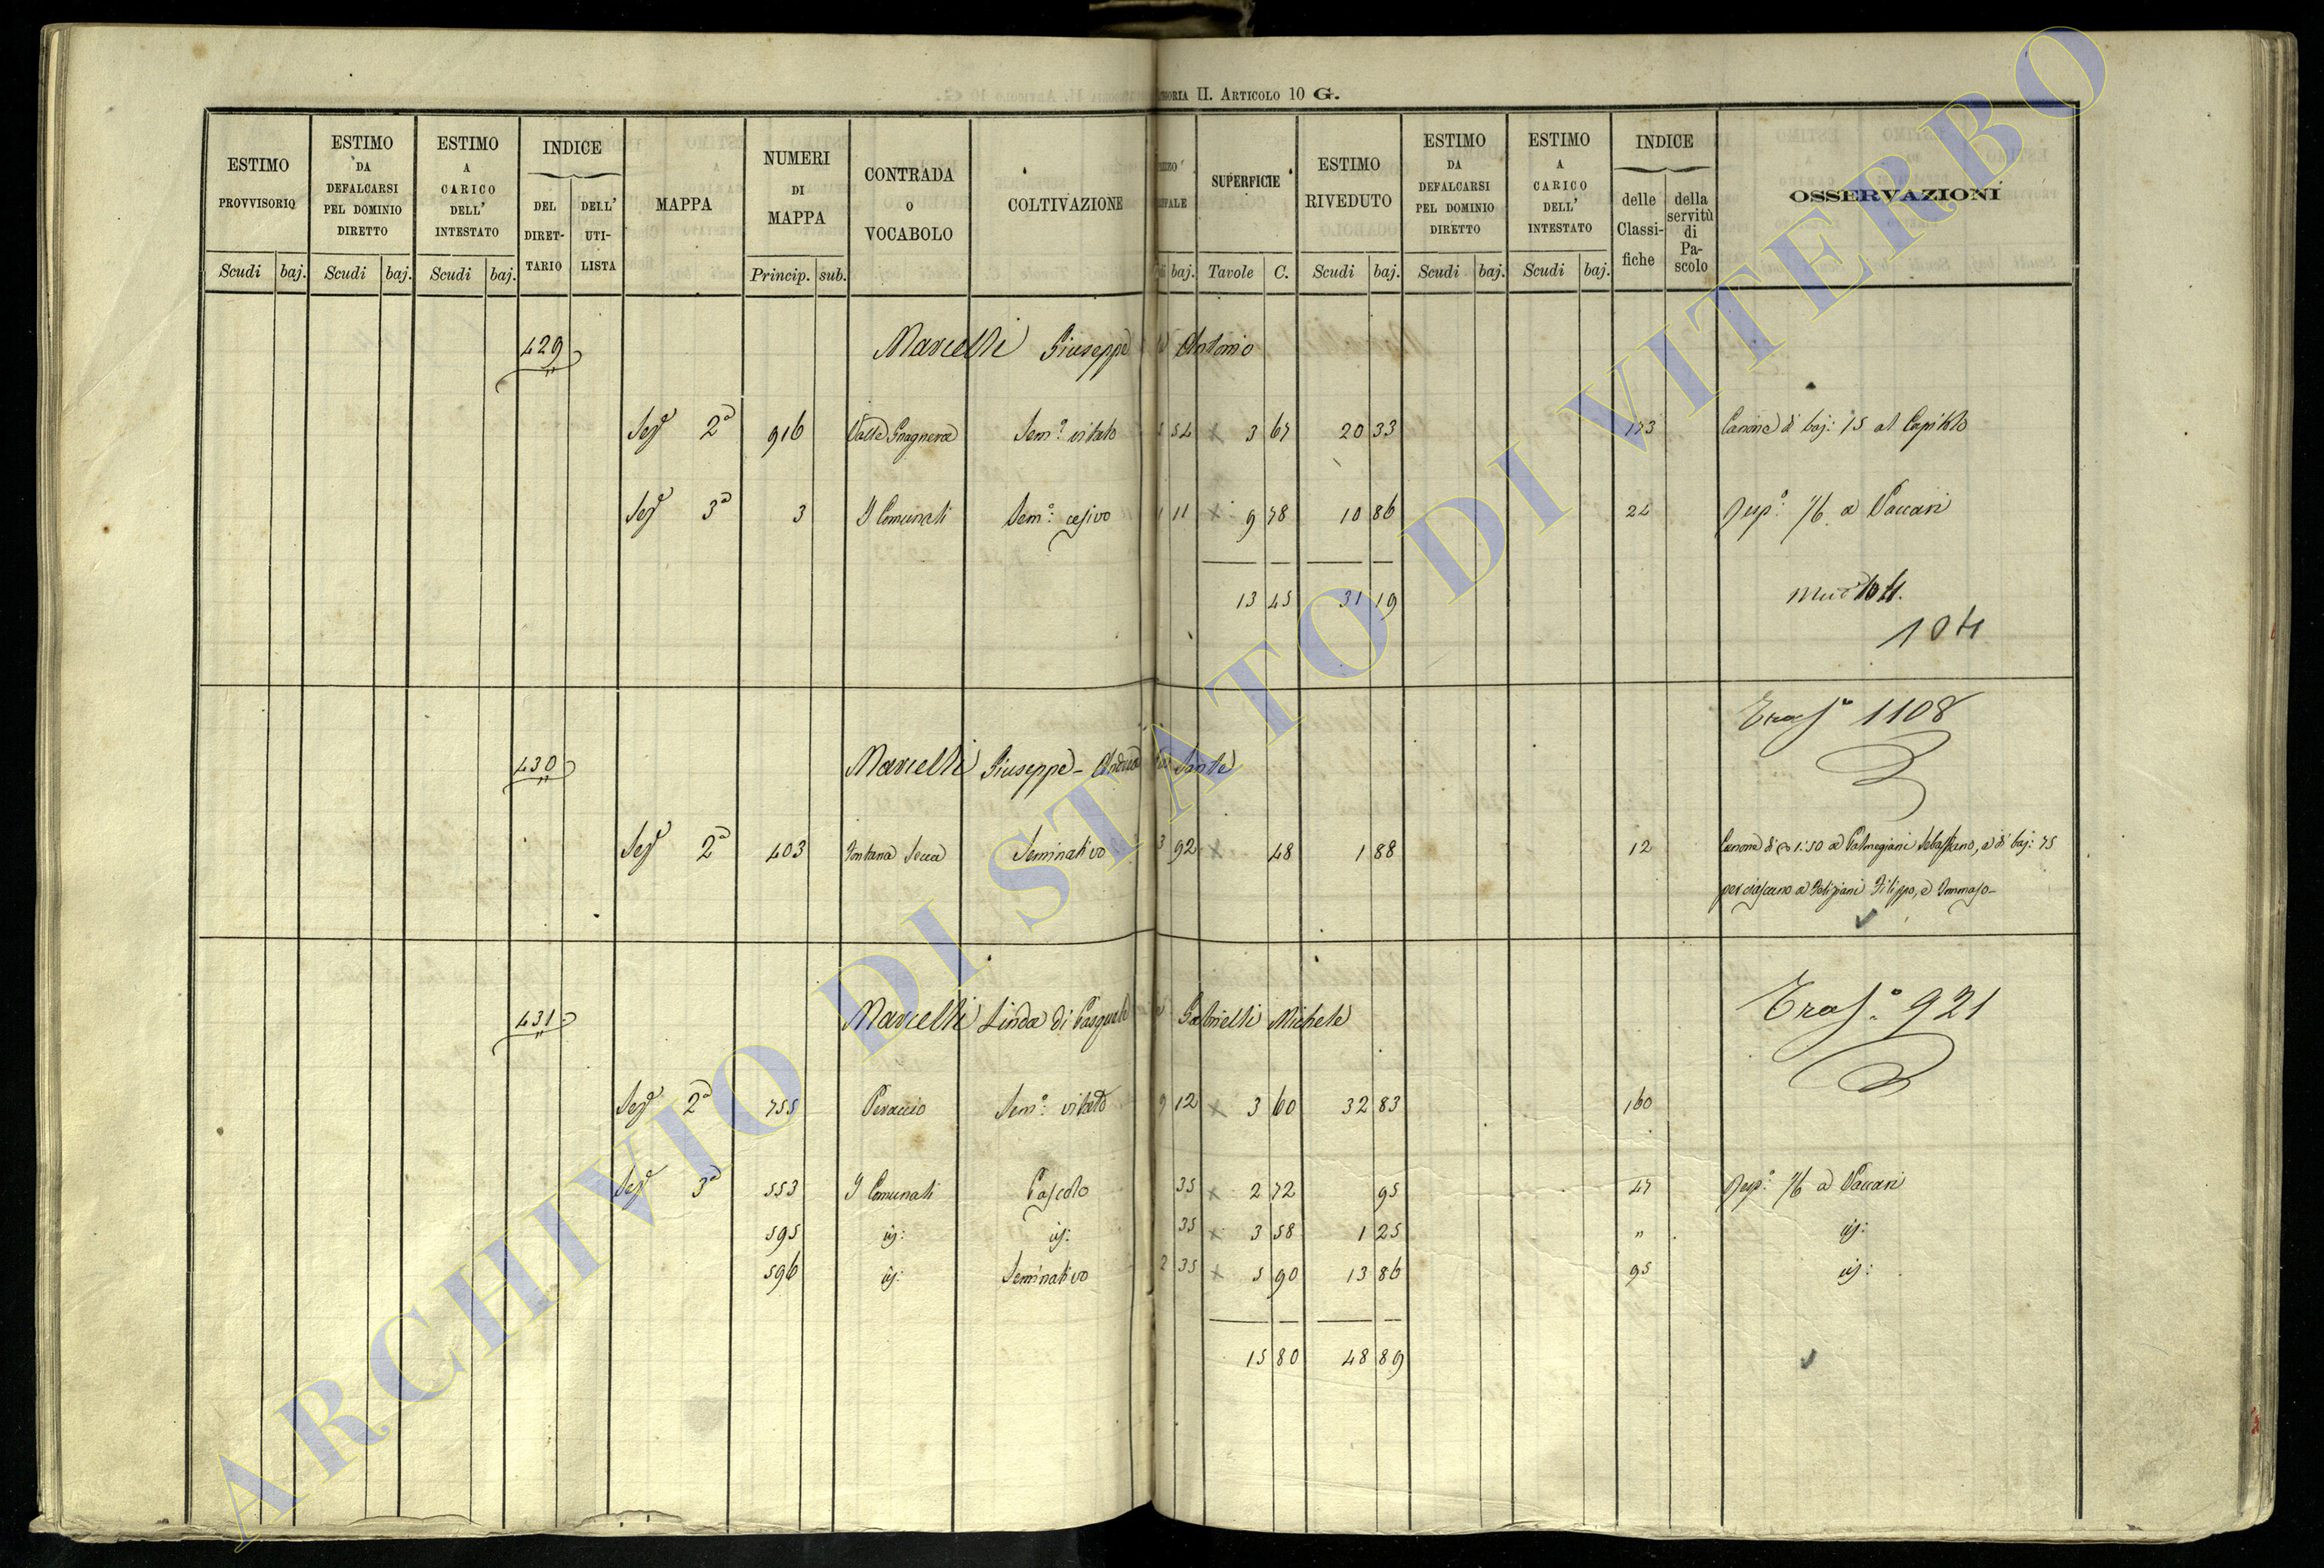 EGORIA II. ARTICOLO 10 G.
ESTIMO PROVVISORIO Scudi baj.
ESTIMO DA DEFALCARSI PEL DOMINIO DIRETTO Scudi baj.
ESTIMO A CARICO DELL' INTESTATO Scudi baj.
INDICE DEL DIRET- TARIO DELL' UTI- LISTA
MAPPA
NUMERI DI MAPPA Princip. sub.
CONTRADA O VOCABOLO
COLTIVAZIONE
baj.
SUPERFICIE Tavole C.
ESTIMO RIVEDUTO Scudi baj.
ESTIMO DA DEFALCARSI PEL DOMINIO DIRETTO Scudi baj.
ESTIMO A CARICO DELL' INTESTATO Scudi baj.
INDICE delle Classi- fiche della servitù di Pa- scolo
OSSERVAZIONI
429 Marcelli Giuseppe Antonio
Sez.e 2a 916 Sem.o vitato 5 54 x 3 67 20 33 173 Canone di baj: 15 al Capitolo
Sez.e 3a 3 I Comunali Sem.o cesivo 1 11 x 9 78 10 86 24 Risp.o 1/6 a Vaccari
13 45 31 19
104
Trasf.o 1108
430 Marcelli Giuseppe - Andrea Sante
Sez.e 2a 403 Fontana Secca Seminativo 3 92 x 48 1 88 12 Canone di 1:50 a Palmegiani Sebastiano, e di baj: 75
per ciascuno a Poliziani Filippo, e Tommaso -
431 Marcelli Linda di Pasquale Gabrielli Michele
Trasf.o 921
Sez.e 2a 755 Peraccio Sem.o vitato 9 12 x 3 60 32 83 160
Sez.e 3a 553 I Comunali Pascolo 35 x 2 72 95 47 Risp.o 1/6 a Vaccari
595 id: id: 35 x 3 58 1 25 " id:
596 id: Seminativo 2 35 x 5 90 13 86 95 id:
15 80 48 89
ARCHIVIO DI STATO DI VITERBO